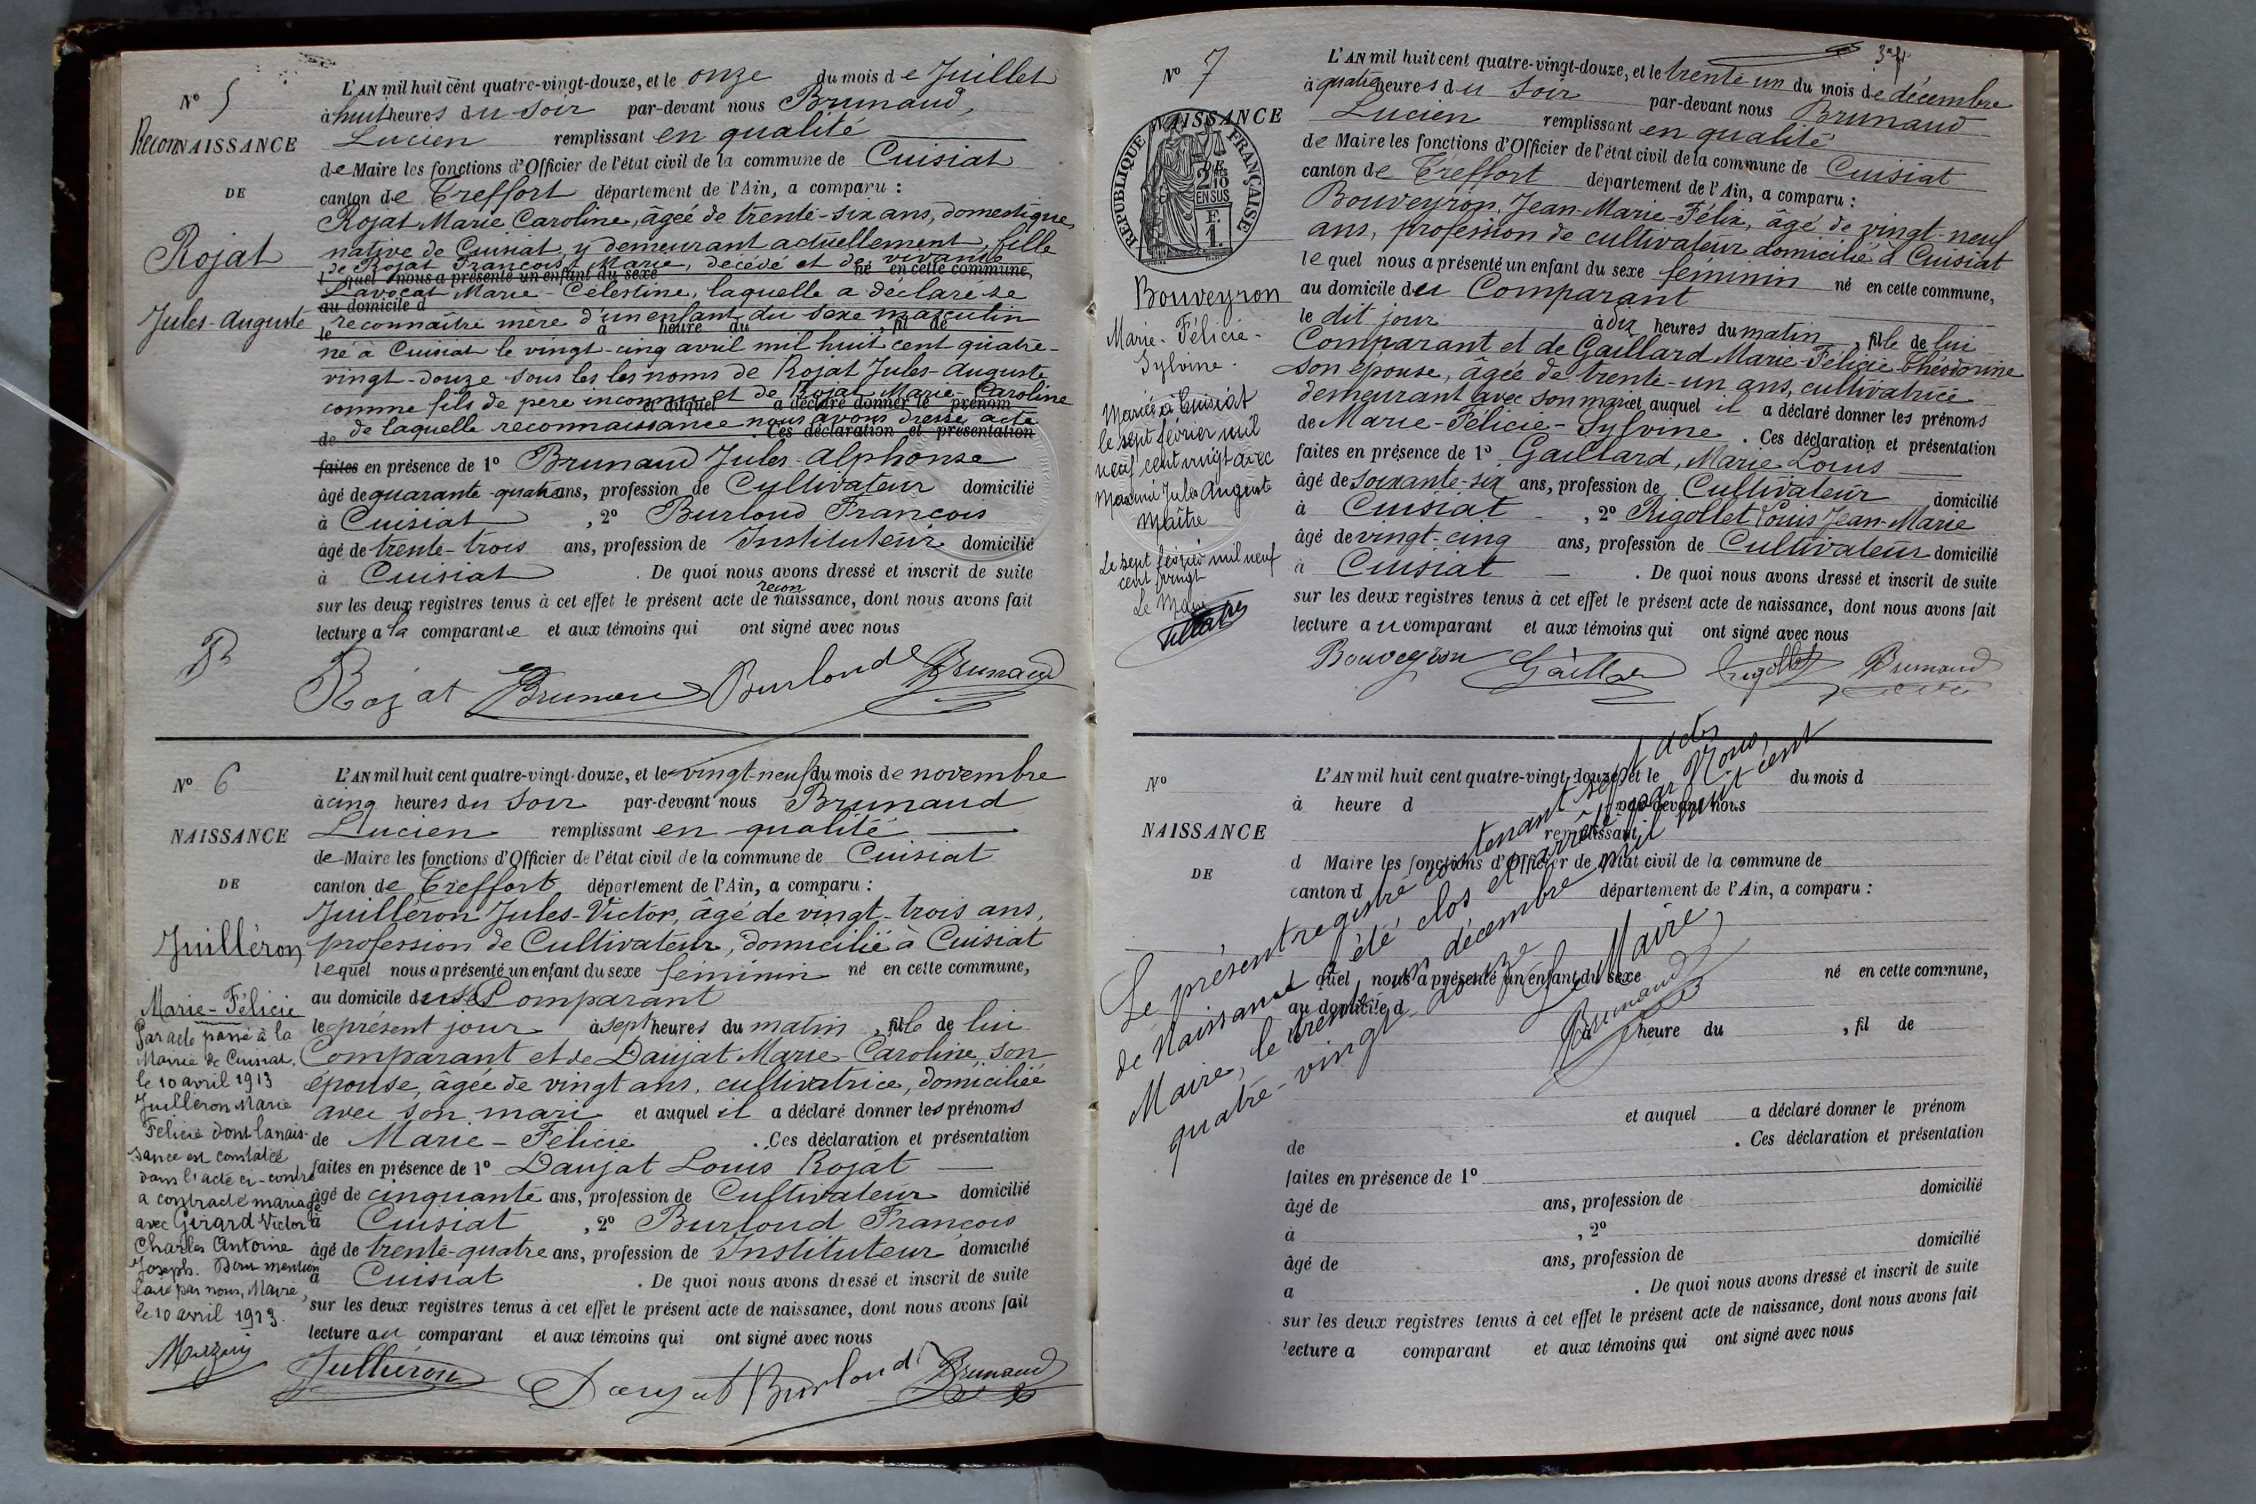 N° 5
ReconNAISSANCE
DE
Rojat
Jules-Auguste
L'AN mil huit cent quatre-vingt-douze, et le onze du mois de Juillet
à huit heures du soir par-devant nous Brunaud,
Lucien remplissant en qualité
de Maire les fonctions d'Officier de l'état civil de la commune de Cuisiat
canton de Treffort département de l'Ain, a comparu :
Rojat Marie Caroline, âgée de trente-six ans, domestique,
native de Cuisiat, y demeurant actuellement, fille
de Rojat François Marie, décédé et de, vivante
l quel nous a présenté un enfant du sexe né en cette commune,
Lavocat Marie-Célestine, laquelle a déclaré se
au domicile d
reconnaître mère d'un enfant du sexe masculin
le à heure du , fil de
né à Cuisiat le vingt-cinq avril mil huit cent quatre-
vingt-douze sous les les noms de Rojat Jules-Auguste
comme fils de père inconnu et de Rojat Marie-Caroline
et auquel a déclaré donner le prénom
de laquelle reconnaissance nous avons dressé acte
de . Ces déclaration et présentation
faites en présence de 1° Brunaud Jules-Alphonse
âgé de quarante-quatre ans, profession de Cultivateur domicilié
à Cuisiat , 2° Burloud François
âgé de trente-trois ans, profession de Instituteur domicilié
à Cuisiat . De quoi nous avons dressé et inscrit de suite
recon
sur les deux registres tenus à cet effet le présent acte de naissance, dont nous avons fait
lecture a la comparante et aux témoins qui ont signé avec nous
Rojat Brunaud Burloud Brunaud
N° 6
NAISSANCE
DE
Juilléron
Marie-Félicie
Par acte passé à la
Mairie de Cuisiat,
le 10 avril 1913
Juilléron Marie
Félicie dont la nais-
sance est constatée
dans l'acte ci-contre
a contracté mariage
avec Girard Victor
Charles Antoine
Joseph. Dont mention
faite par nous, Maire,
le 10 avril 1913.
L'AN mil huit cent quatre-vingt-douze, et le vingt-neuf du mois de novembre
à cinq heures du soir par-devant nous Brunaud
Lucien remplissant en qualité
de Maire les fonctions d'Officier de l'état civil de la commune de Cuisiat
canton de Treffort département de l'Ain, a comparu :
Juilléron Jules-Victor, âgé de vingt-trois ans,
profession de Cultivateur, domicilié à Cuisiat
lequel nous a présenté un enfant du sexe féminin né en cette commune,
au domicile dudit Comparant
le présent jour à sept heures du matin, fille de lui
Comparant et de Daujat Marie-Caroline, son
épouse, âgée de vingt ans, cultivatrice, domiciliée
avec son mari et auquel il a déclaré donner les prénoms
de Marie-Félicie . Ces déclaration et présentation
faites en présence de 1° Daujat Louis Rojat
âgé de cinquante ans, profession de Cultivateur domicilié
à Cuisiat , 2° Burloud François
âgé de trente-quatre ans, profession de Instituteur domicilié
à Cuisiat . De quoi nous avons dressé et inscrit de suite
sur les deux registres tenus à cet effet le présent acte de naissance, dont nous avons fait
lecture au comparant et aux témoins qui ont signé avec nous
Juilléron Daujat Burloud Brunaud
3e f.
N° 7
NAISSANCE
RÉPUBLIQUE FRANÇAISE
2/10
EN SUS
F.
1.
Bouveyron
Marie-Félicie-
Sylvine.
Mariée à Cuisiat
le sept février mil
neuf cent vingt avec
Maximé Jules August
Maître
Le sept février mil neuf
cent vingt
Le Maire
L'AN mil huit cent quatre-vingt-douze, et le trente un du mois de décembre
à quatre heures du soir par-devant nous Brunaud
Lucien remplissant en qualité
de Maire les fonctions d'Officier de l'état civil de la commune de Cuisiat
canton de Treffort département de l'Ain, a comparu :
Bouveyron, Jean-Marie-Félix, âgé de vingt-neuf
ans, profession de cultivateur domicilié à Cuisiat
lequel nous a présenté un enfant du sexe féminin né en cette commune,
au domicile du Comparant
le dit jour à dix heures du matin, fille de lui
Comparant et de Gaillard Marie-Félicie Théodorine
son épouse, âgée de trente-un ans, cultivatrice
demeurant avec son mari et auquel il a déclaré donner les prénoms
de Marie-Félicie-Sylvine . Ces déclaration et présentation
faites en présence de 1° Gaillard, Marie Louis
âgé de soixante-six ans, profession de Cultivateur domicilié
à Cuisiat , 2° Rigollet Louis Jean-Marie
âgé de vingt-cinq ans, profession de Cultivateur domicilié
à Cuisiat . De quoi nous avons dressé et inscrit de suite
sur les deux registres tenus à cet effet le présent acte de naissance, dont nous avons fait
lecture au comparant et aux témoins qui ont signé avec nous
Bouveyron Gaillard Rigollet Brunaud
N°
NAISSANCE
DE
L'AN mil huit cent quatre-vingt-douze, et le du mois d
à heure d par-devant nous
remplissant
d Maire les fonctions d'Officier de l'état civil de la commune de
canton d département de l'Ain, a comparu :
quel nous a présenté un enfant du sexe né en cette commune,
au domicile d
à heure du , fil de
et auquel a déclaré donner le prénom
de . Ces déclaration et présentation
faites en présence de 1°
âgé de ans, profession de domicilié
à , 2°
âgé de ans, profession de domicilié
a . De quoi nous avons dressé et inscrit de suite
sur les deux registres tenus à cet effet le présent acte de naissance, dont nous avons fait
lecture a comparant et aux témoins qui ont signé avec nous
Le présent registre contenant sept actes
de Naissance a été clos et arrêté par Nous,
Maire, le trente un décembre mil huit cent
quatre-vingt-douze
Le Maire,
Brunaud